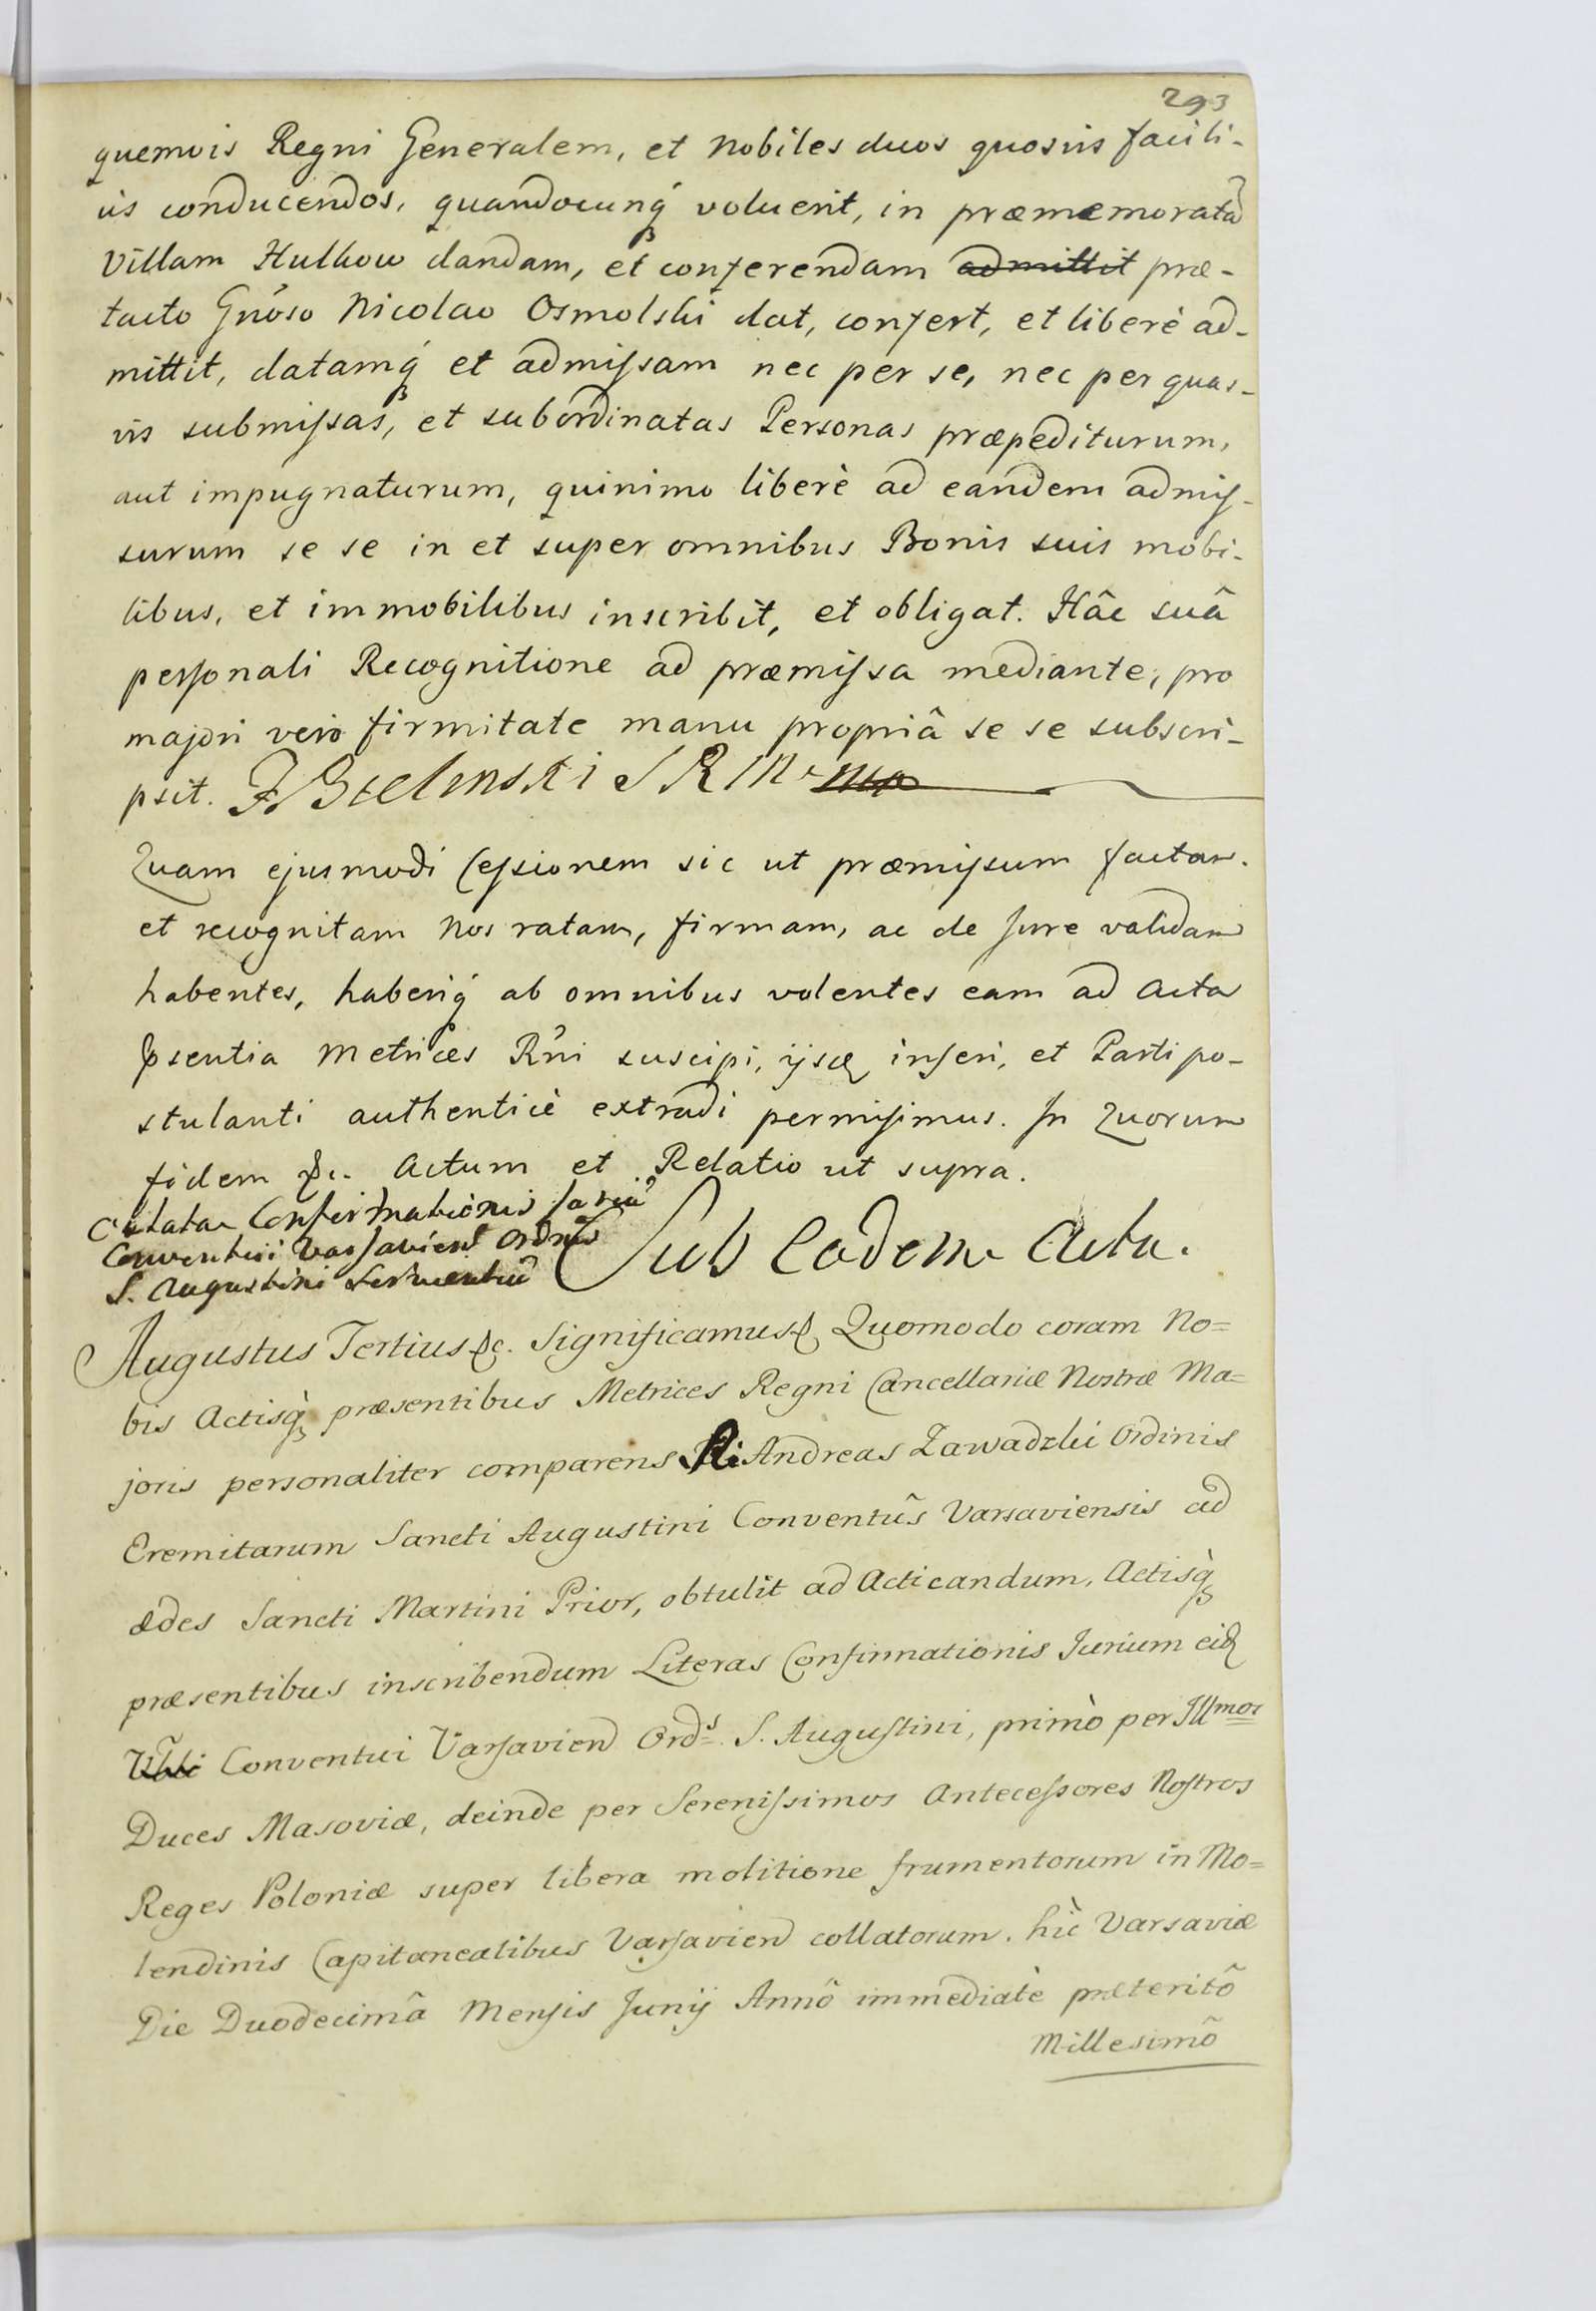 293
quemvis Regni Generalem, et Nobiles duos quosvis facili-
ùs conducendos, quandocunq́ voluerit, in præmemoratã
Villam Hulkow dandam, et conferendam admittit præ-
tacto Gnóso Nicolao Osmolski dat, confert, et liberè ad-
mittit, datamq́ et admissam nec per se, nec per quas-
vis submissas, et subordinatas Personas præpediturum,
aut impugnaturum, quinimo liberè ad eandem admis-
surum se se in et super omnibus Bonis suis mobi-
libus, et immobilibus inscribit, et obligat. Hâc suâ
personali Recognitione ad præmissa mediante, pro
majori vero firmitate manu propriâ se se subscri-
psit. F Bielinski
Quam ejusmodi Cessionem sic ut præmissum factam.
et recognitam Nos ratam, firmam, ac de Jure validam
habentes, haberiq́ ab omnibus volentes eam ad Acta
psentia Metrices Rńi suscipi, ijsq inseri, et Parti po-
stulanti authenticè extradi permisimus. In Quorum
fidem &c. Actum et Relatio ut supra.
Oblata Confirmationis Juriũ
Conventui Varsavien Ordnis
S. Augustini servientiũ
Sub Eadem Acta.
Augustus Tertius &c. Significamus & Quomodo coram No=
bis Actisq̀ præsentibus Metrices Regni Cancellariæ Nostræ Ma=
joris personaliter comparens Andreas Zawadzki Ordinis
Eremitarum Sancti Augustini Conventûs Varsaviensis ad
ædes Sancti Martini Prior, obtulit ad Acticandum, Actisq̀
præsentibus inscribendum Literas Confirmationis Jurium eid
Conventui Varsavien Ords. S. Augustini, primò per Illmos
Duces Masoviæ, deinde per Serenissimos Antecessores Nostros
Reges Poloniæ super libera molitione frumentorum in Mo=
lendinis Capitanealibus Varsavien collatorum. hìc Varsaviæ
Die Duodecimâ Mensis Junij Annô immediatè præteritô
Millesimô